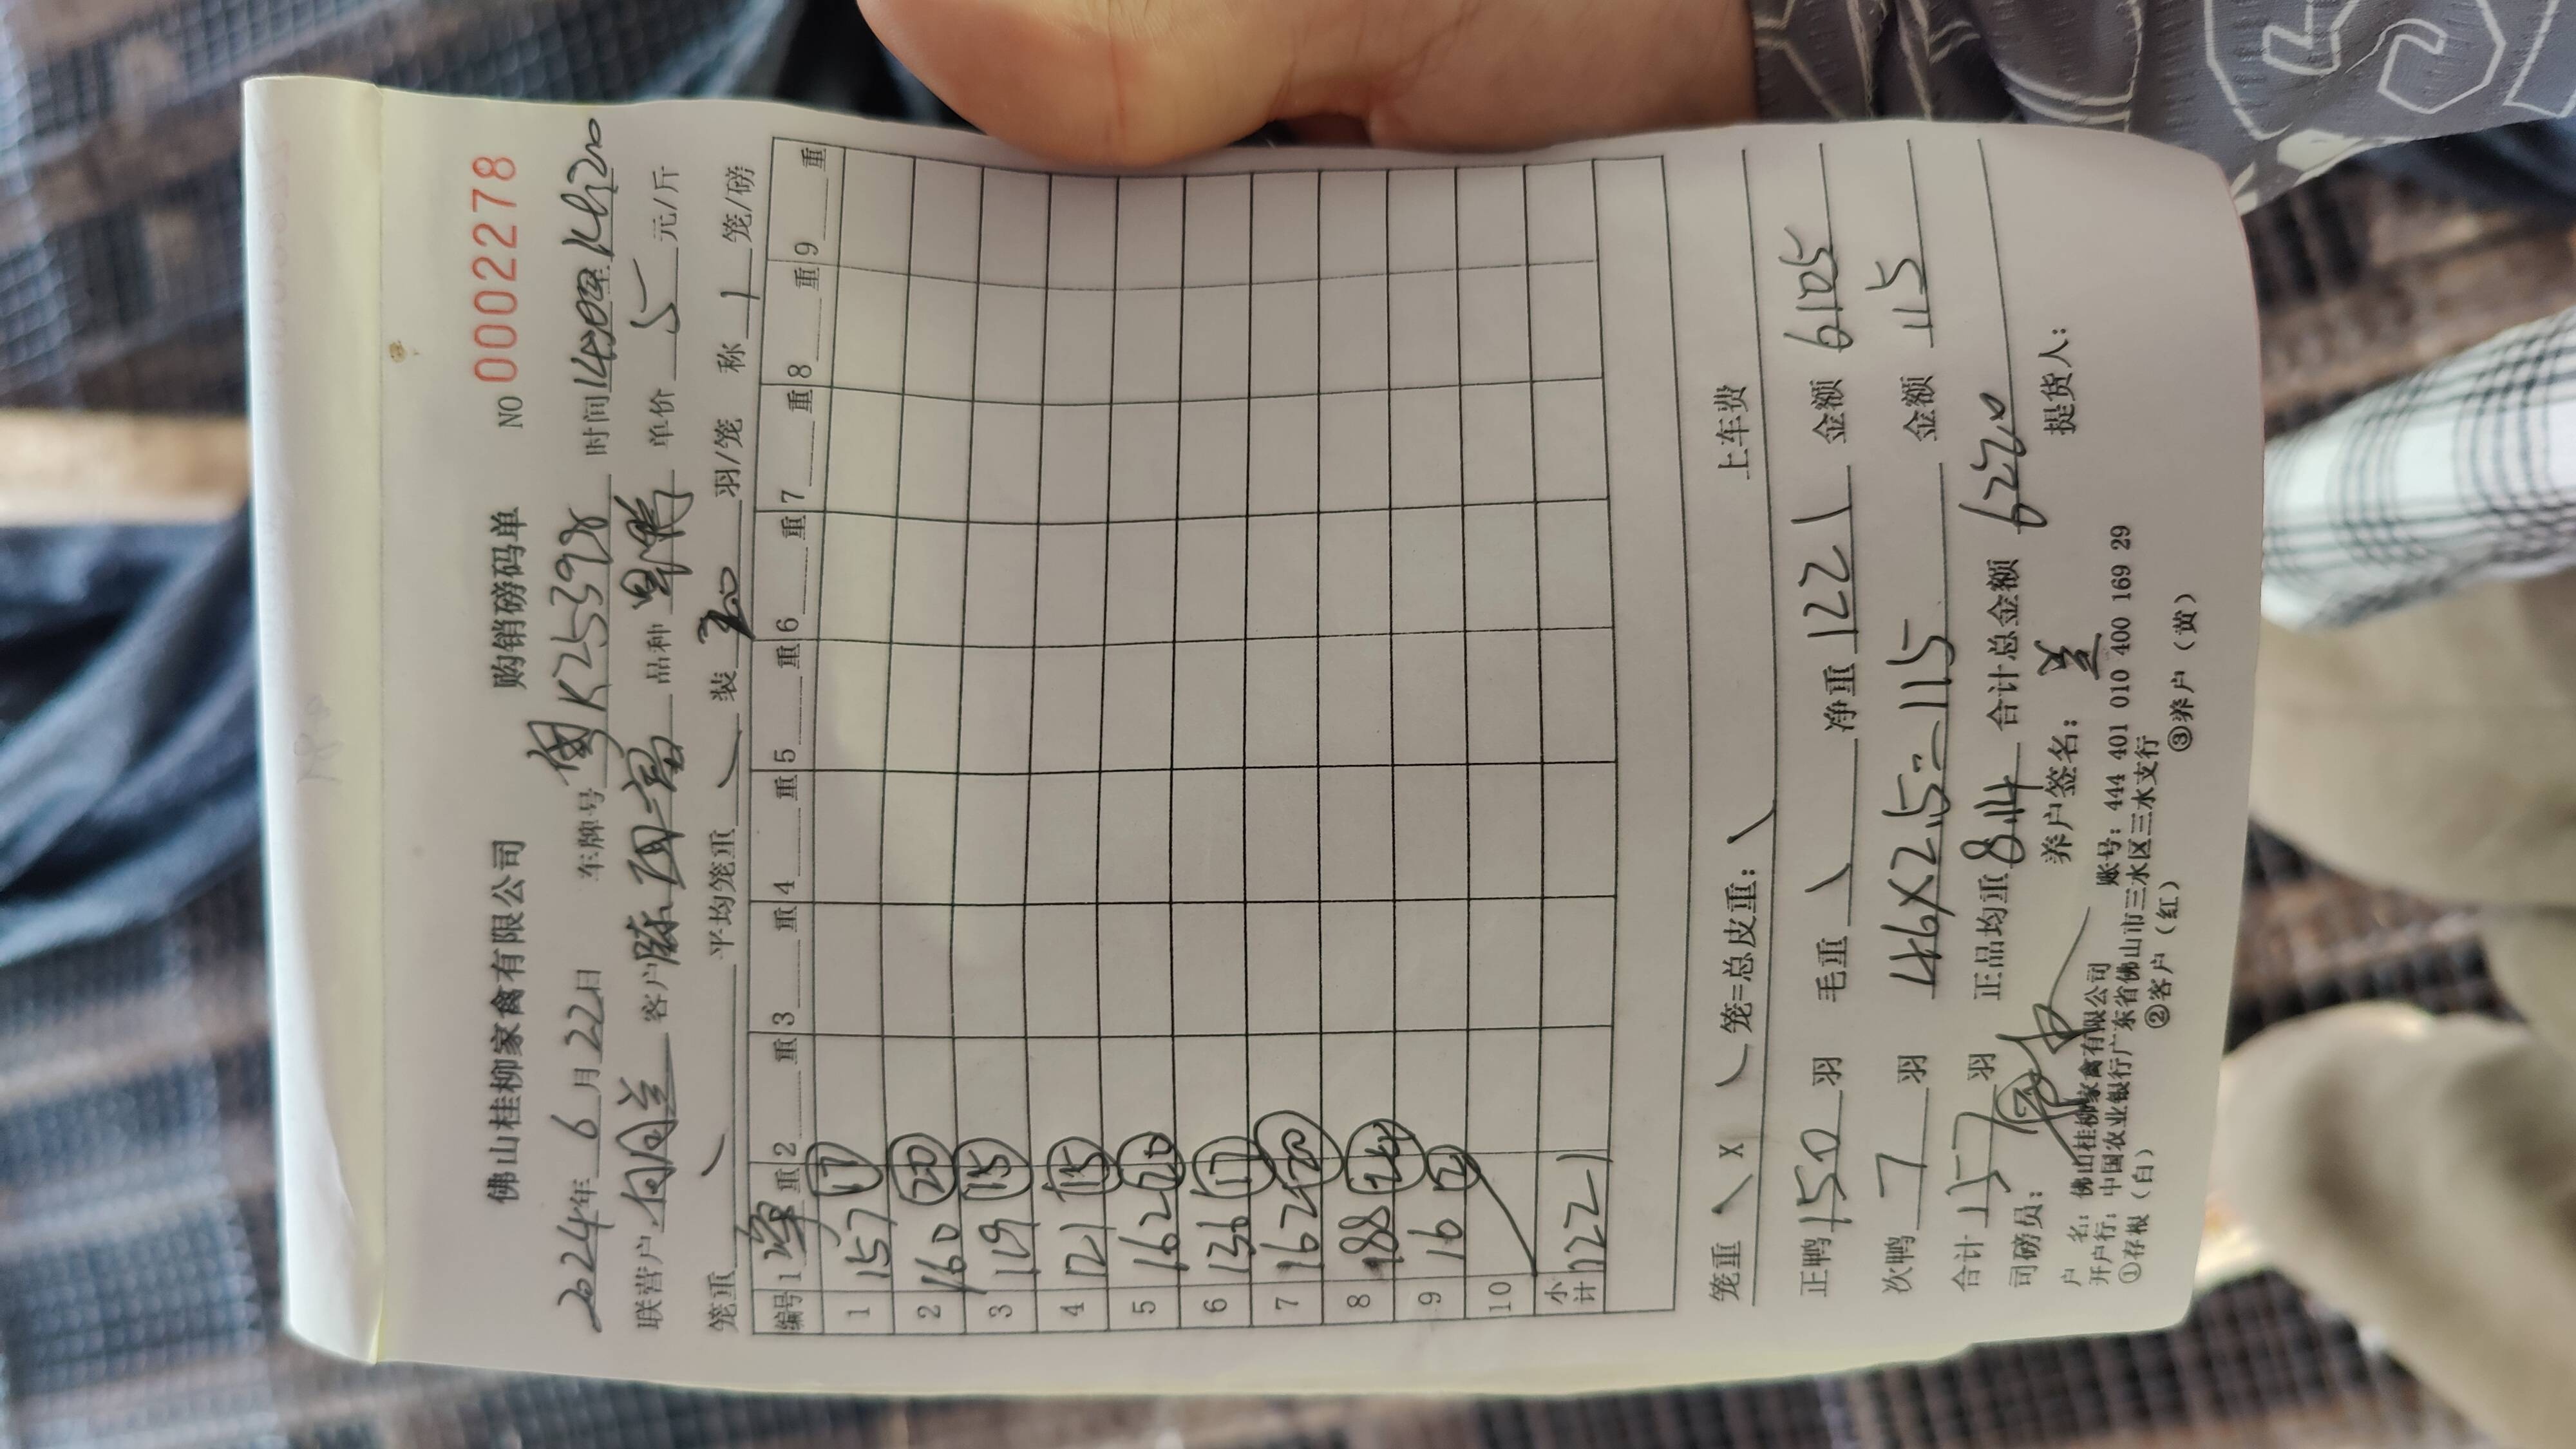 佛山桂柳家禽有限公司 购销磅码单 NO 0002278
2024年 6 月 22 日 车牌号 K25398 时间 14:20
联营户 向兰 客户 陈 品种 单价 5 元/斤
笼重 平均笼重 装 羽/笼 称 1 笼/磅
编号 1 重 2 重 3 重 4 重 5 重 6 重 7 重 8 重 9 重
1 157 17
2 160 20
3 119 15
4 121 15
5 162 20
6 136 17
7 162 20
8 188 24
9 16 2
10
小计 1221
笼重 X 笼=总皮重: 上车费
正鸭 150 羽 毛重 净重 1221 金额 6105
次鸭 7 羽 46×2.5=115 金额 115
合计 157 羽 正品均重 8.14 合计总金额 6220
司磅员: 养户签名: 兰 提货人:
户 名: 佛山桂柳家禽有限公司 账号: 444 401 010 400 169 29
开户行: 中国农业银行广东省佛山市三水区三水支行
①存根(白) ②客户(红) ③养户(黄)